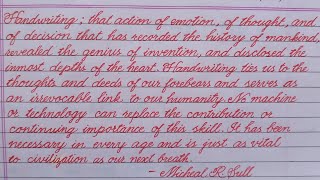 Handwriting; that action of emotion, of thought, and
of decision that has recorded the history of mankind,
revealed the genius of invention, and disclosed the
inmost depths of the heart. Handwriting ties us to the
thoughts and deeds of our forebears and serves as
an irrevocable link to our humanity. No machine
or technology can replace the contribution or
continuing importance of this skill. It has been
necessary in every age and is just as vital
to civilization as our next breath.
- Micheal R Sull